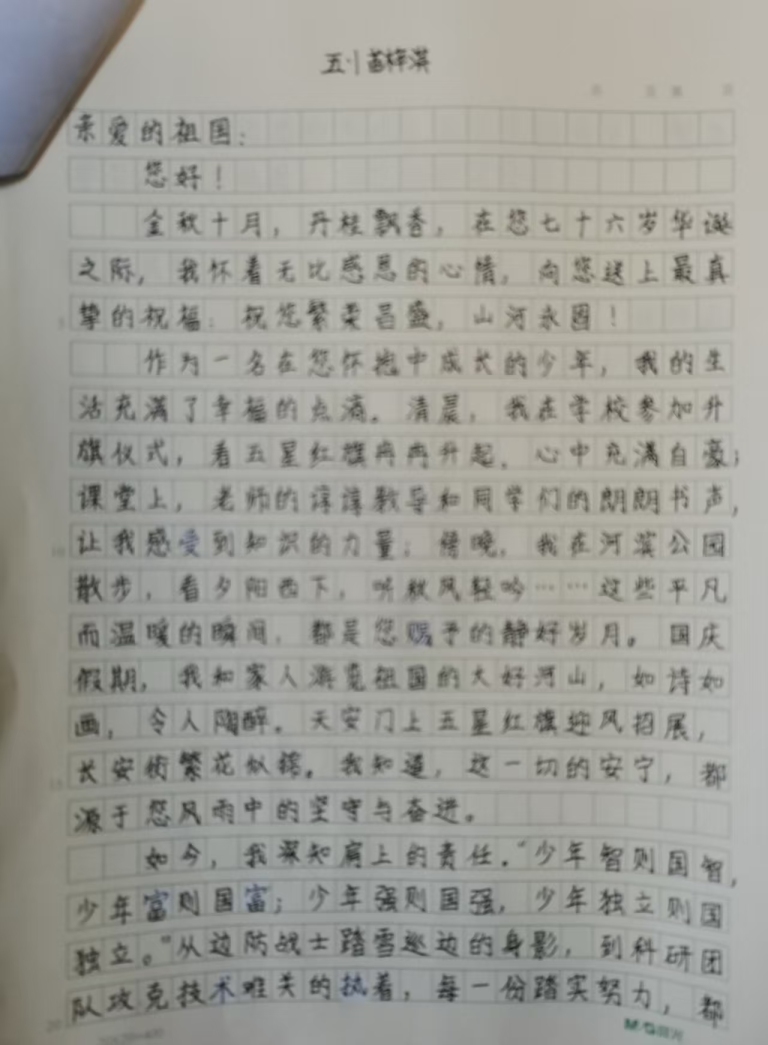 五·1 苗梓淇
亲爱的祖国:
您好!
金秋十月,丹桂飘香,在您七十六岁华诞
之际,我怀着无比感恩的心情,向您送上最真
挚的祝福:祝您繁荣昌盛,山河永固!
作为一名在您怀抱中成长的少年,我的生
活充满了幸福的点滴。清晨,我在学校参加升
旗仪式,看五星红旗冉冉升起,心中充满自豪;
课堂上,老师的谆谆教导和同学们的朗朗书声,
让我感受到知识的力量;傍晚,我在河滨公园
散步,看夕阳西下,听秋风轻吟……这些平凡
而温暖的瞬间,都是您赐予的静好岁月。国庆
假期,我和家人游览祖国的大好河山,如诗如
画,令人陶醉。天安门上五星红旗迎风招展,
长安街繁花似锦。我知道,这一切的安宁,都
源于您风雨中的坚守与奋进。
如今,我深知肩上的责任。“少年智则国智,
少年富则国富;少年强则国强,少年独立则国
独立。”从边防战士踏雪巡边的身影,到科研团
队攻克技术难关的执着,每一份踏实努力,都
M&G晨光